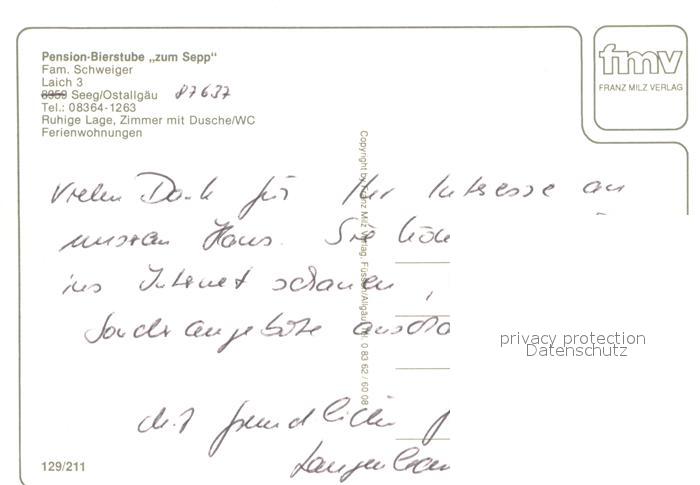 Pension-Bierstube „zum Sepp“
Fam. Schweiger
Laich 3
8959 Seeg/Ostallgäu 87637
Tel.: 08364-1263
Ruhige Lage, Zimmer mit Dusche/WC
Ferienwohnungen
fmv
FRANZ MILZ VERLAG
Copyright by Franz Milz Verlag, Füssen/Allgäu, Tel. 0 83 62 / 60 08
Vielen Dank für Ihr Interesse an
unserem Haus. Sie
ins Internet schauen,
Sonderangebote
Mit freundlichen
privacy protection
Datenschutz
129/211